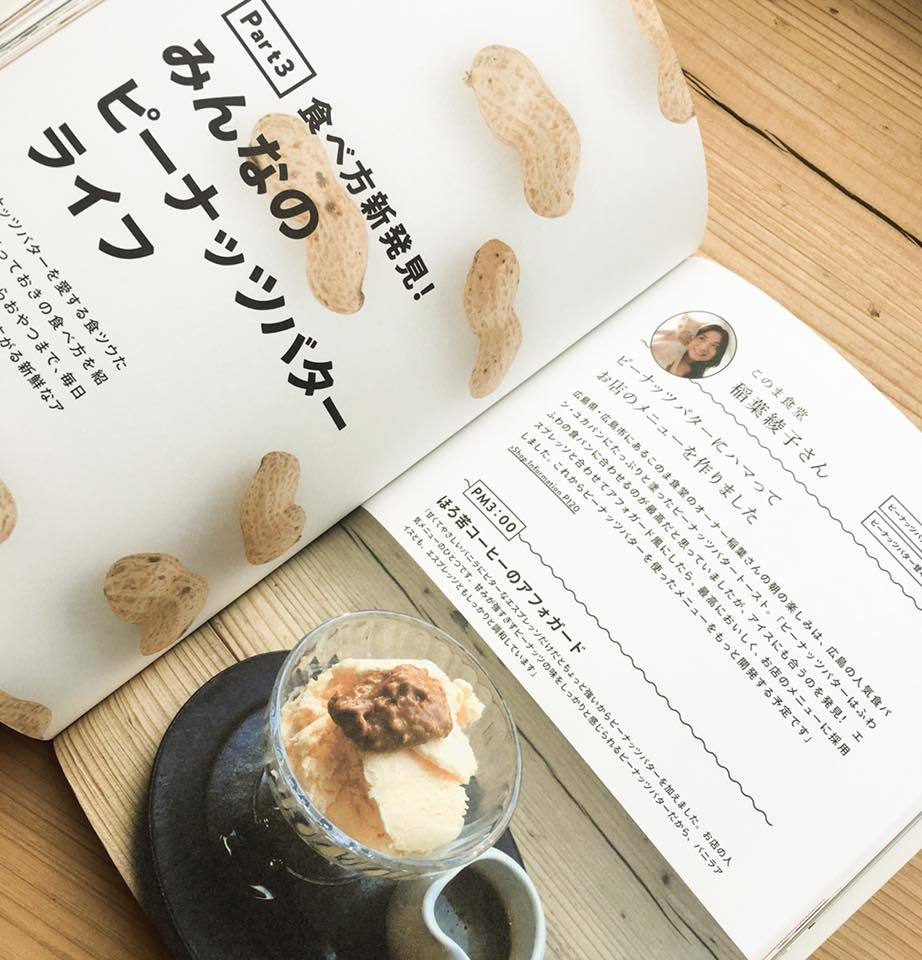 Part3
食べ方新発見!
みんなの
ピーナッツバター
ライフ
ナッツバターを愛する食ツウた
っておきの食べ方を紹
らおやつまで、毎日
がる新鮮なア
このま食堂
稲葉綾子さん
ピーナッツバターにハマって
お店のメニューを作りました
広島県・広島市にあるこのま食堂のオーナー稲葉さんの朝の楽しみは、広島の人気食パ
ン・ユカパンにたっぷりと塗ったピーナッツバタートースト。「ピーナッツバターはふわ
ふわの食パンに合わせるのが最高だと思っていましたが、アイスにも合うのを発見! エ
スプレッソと合わせてアフォガード風にしたら、最高においしく、お店のメニューに採用
しました。これからピーナッツバターを使ったメニューをもっと開発する予定です」
›Shop Information P120
PM3:00
ほろ苦コーヒーのアフォガード
「甘くてやさしいバニラにビターなエスプレッソだけだとちょっと強いからピーナッツバターを加えました。お店の人
気メニューのひとつです。甘みが強すぎずピーナッツの味をしっかりと感じられるピーナッツバターだから、バニラア
イスとも、エスプレッソともしっかりと調和しています」
ピーナッツバ
ピーナッツバター